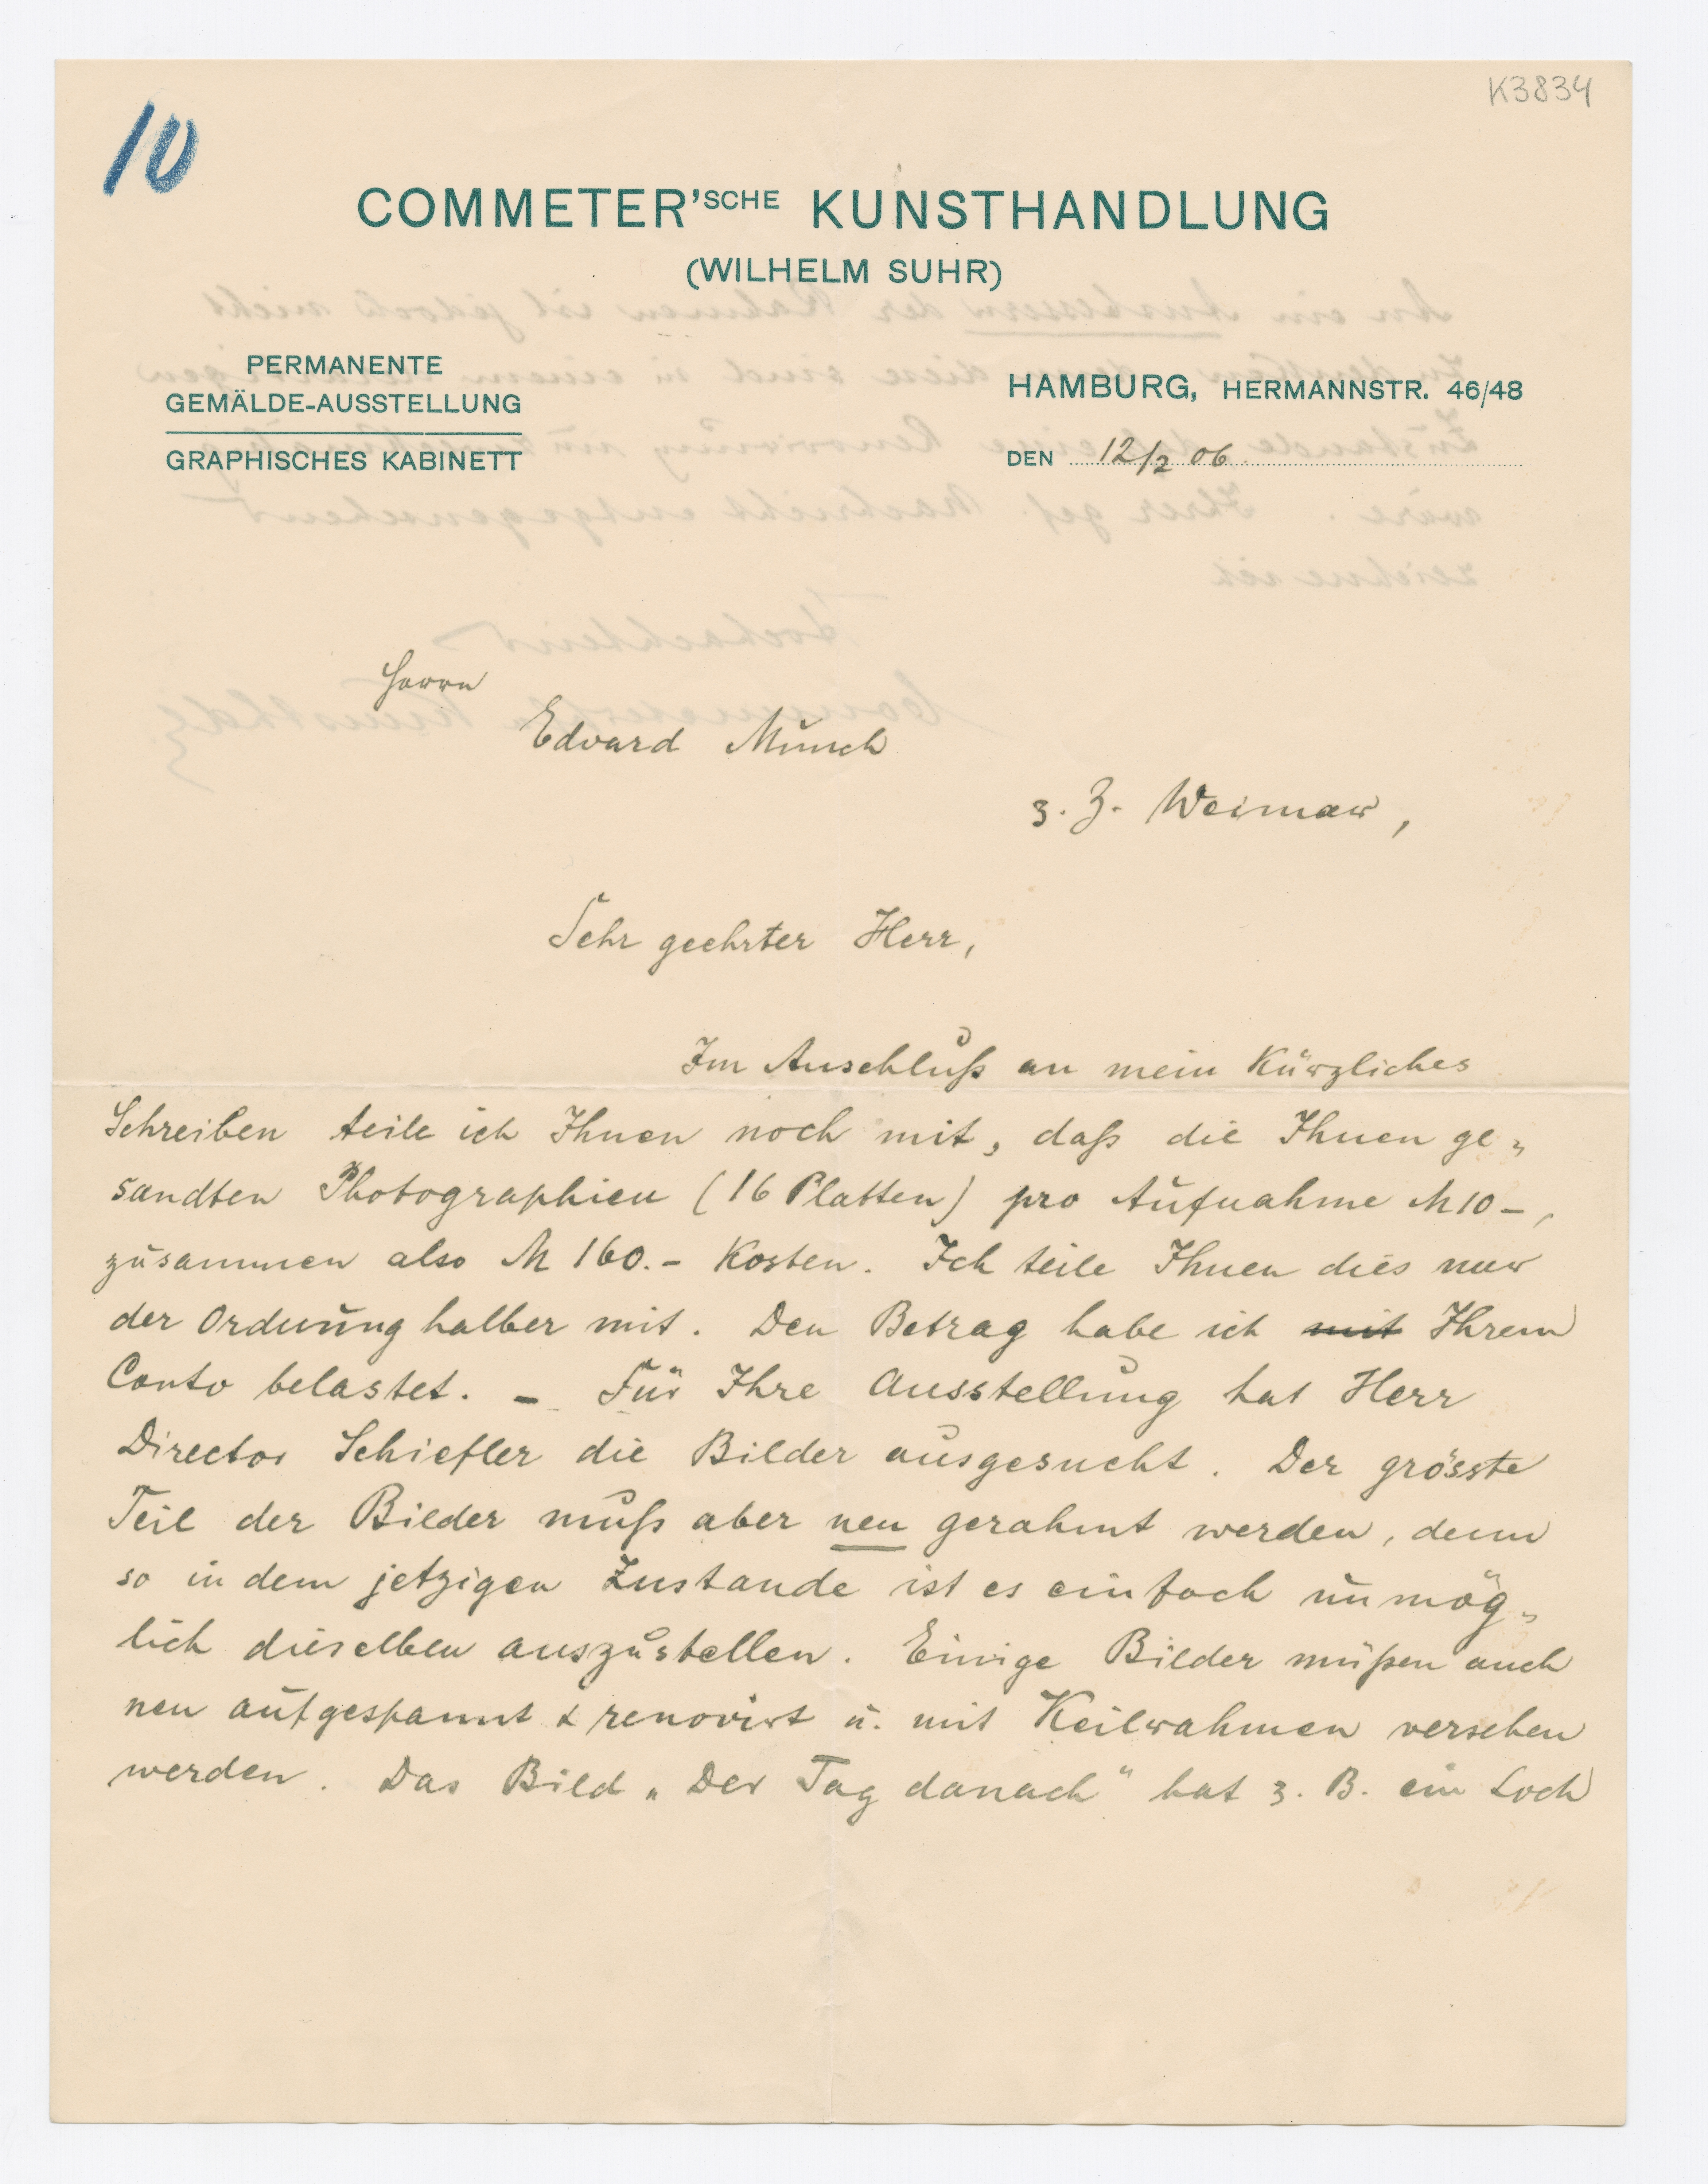 K3834
10
COMMETER'SCHE KUNSTHANDLUNG
(WILHELM SUHR)
PERMANENTE
GEMÄLDE-AUSSTELLUNG
GRAPHISCHES KABINETT
HAMBURG, HERMANNSTR. 46/48
DEN 12/2 06.
Herrn
Edvard Munch
z. Z. Weimar,
Sehr geehrter Herr,
Im Anschluß an mein Kürzliches
Schreiben teile ich Ihnen noch mit, daß die Ihnen ge„
sandten Photographien (16 Platten) pro Aufnahme M 10 –,
zusammen also M 160.– Kosten. Ich teile Ihnen dies nur
der Ordnung halber mit. Den Betrag habe ich mit Ihrem
Conto belastet. – Für Ihre Ausstellung hat Herr
Director Schiefler die Bilder ausgesucht. Der grösste
Teil der Bilder muß aber neu gerahmt werden, denn
so in dem jetzigen Zustande ist es einfach unmög„
lich dieselben auszustellen. Einige Bilder müßen auch
neu aufgespannt & renovirt u. mit Keilrahmen versehen
werden. Das Bild „Der Tag danach“ hat z. B. ein Loch